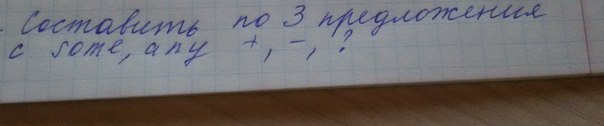 Составить по 3 предложения
с some, any +, -, ?